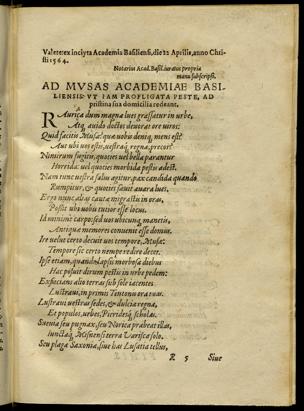 Valete: ex inclyta Academia Basiliensi, die 22 Aprilis, anno Chri-
sti 1564.
Notarius Acad. Basil. iuratus propria
manu subscripsi.
AD MVSAS ACADEMIAE BASI-
LIENSIS: VT IAM PROFLIGATA PESTE, AD
pristina sua domicilia redeant.
RAurica dum magna lues grassatur in urbe,
Atq; auido doctos deuorat ore uiros:
Quid facitis Musæ? quæ uobis demum, eniq; est?
Aut ubi uos estis, uestraq; regna, precor?
Nimirum fugitis, quoties uel bella parantur
Horrida: uel quoties morbida pestis adest.
Nam tunc uestra salus agitur, pax candida quando
Rumpitur, & quoties sæuit auara lues.
Ergo nunc aliquò cautæ migrastis in oras,
Possit ubi uobis tutior esse locus.
Id minimè carpo: sed uos ubicunq; manetis,
Antiquæ memores conuenit esse domus.
Ire uelut certo decuit uos tempore, Musæ:
Tempore sic certo nempe redire decet.
Ipse etiam, quando lapsis morbosa diebus
Hac posuit dirum pestis in urbe pedem:
Exspecians alio terras sub sole iacentes
Lustraui, in primis Teutonis ora tuas.
Lustraui uestras sedes, & dulcia regna,
Et populos, urbes, Pieridesq; scholas.
Sueuia seu pugnax, seu Norica præbeat illas,
iunctaq; Misnensi terra Varisca solo.
Seu plaga Saxoniæ, siue has Lusatia tellus,
R 5 Siue